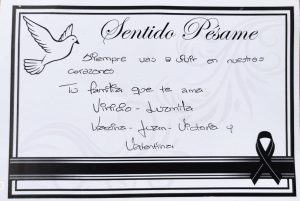 Sentido Pésame
Siempre vas a vivir en nuestros
corazones
Tu familia que te ama
Virficio - Luzmila
Karina - Juan - Victoria y
Valentina